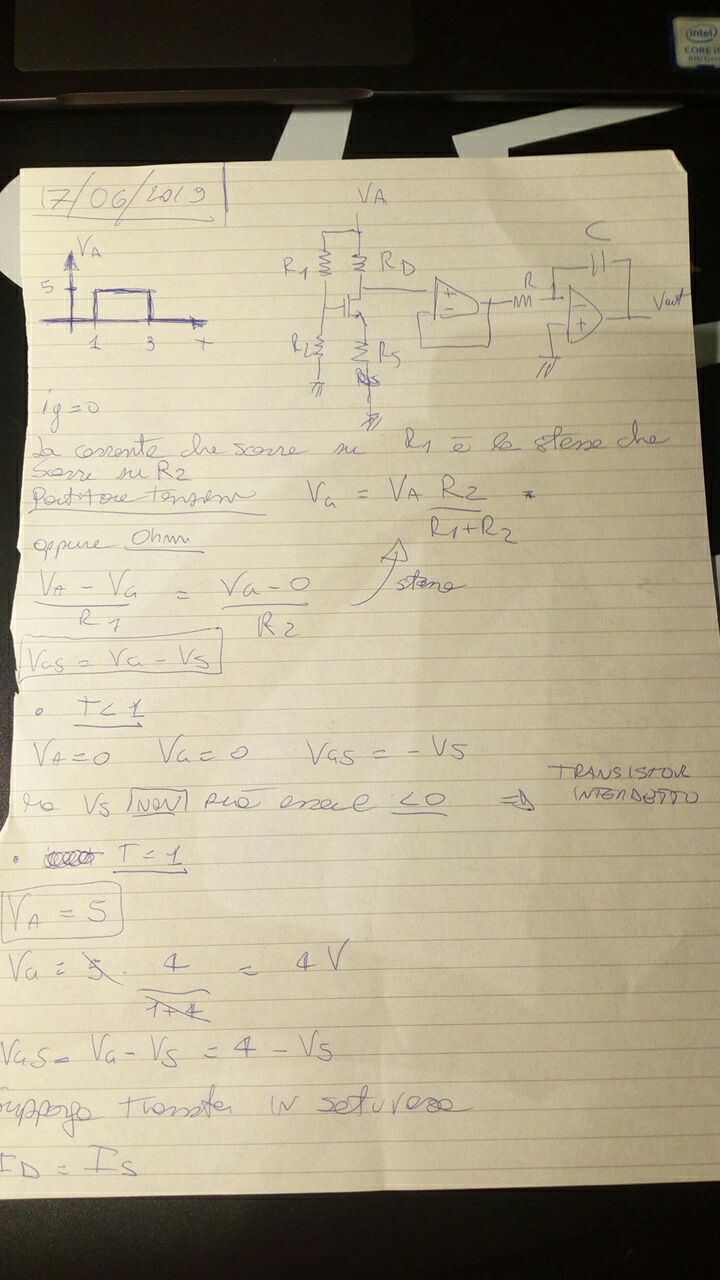 intel
CORE i5
17/06/2019
VA
5
1 3 t
VA
R1 RD
R2 RS
R C
Vout
+
-
-
+
ig=0
La corrente che scorre su R1 è la stessa che
scorre su R2
Partitore tensioni VG = VA R2 / R1+R2
oppure Ohm
VA - VG / R1 = VG - 0 / R2 stessa
VGS = VG - VS
• T < 1
VA=0 VG=0 VGS = -VS
ma VS NON può essere <0 => TRANSISTOR
INTERDETTO
• T = 1
VA = 5
VG = 5 · 4 / 1+4 = 4V
VGS = VG - VS = 4 - VS
Suppongo transistor in saturazione
ID = IS